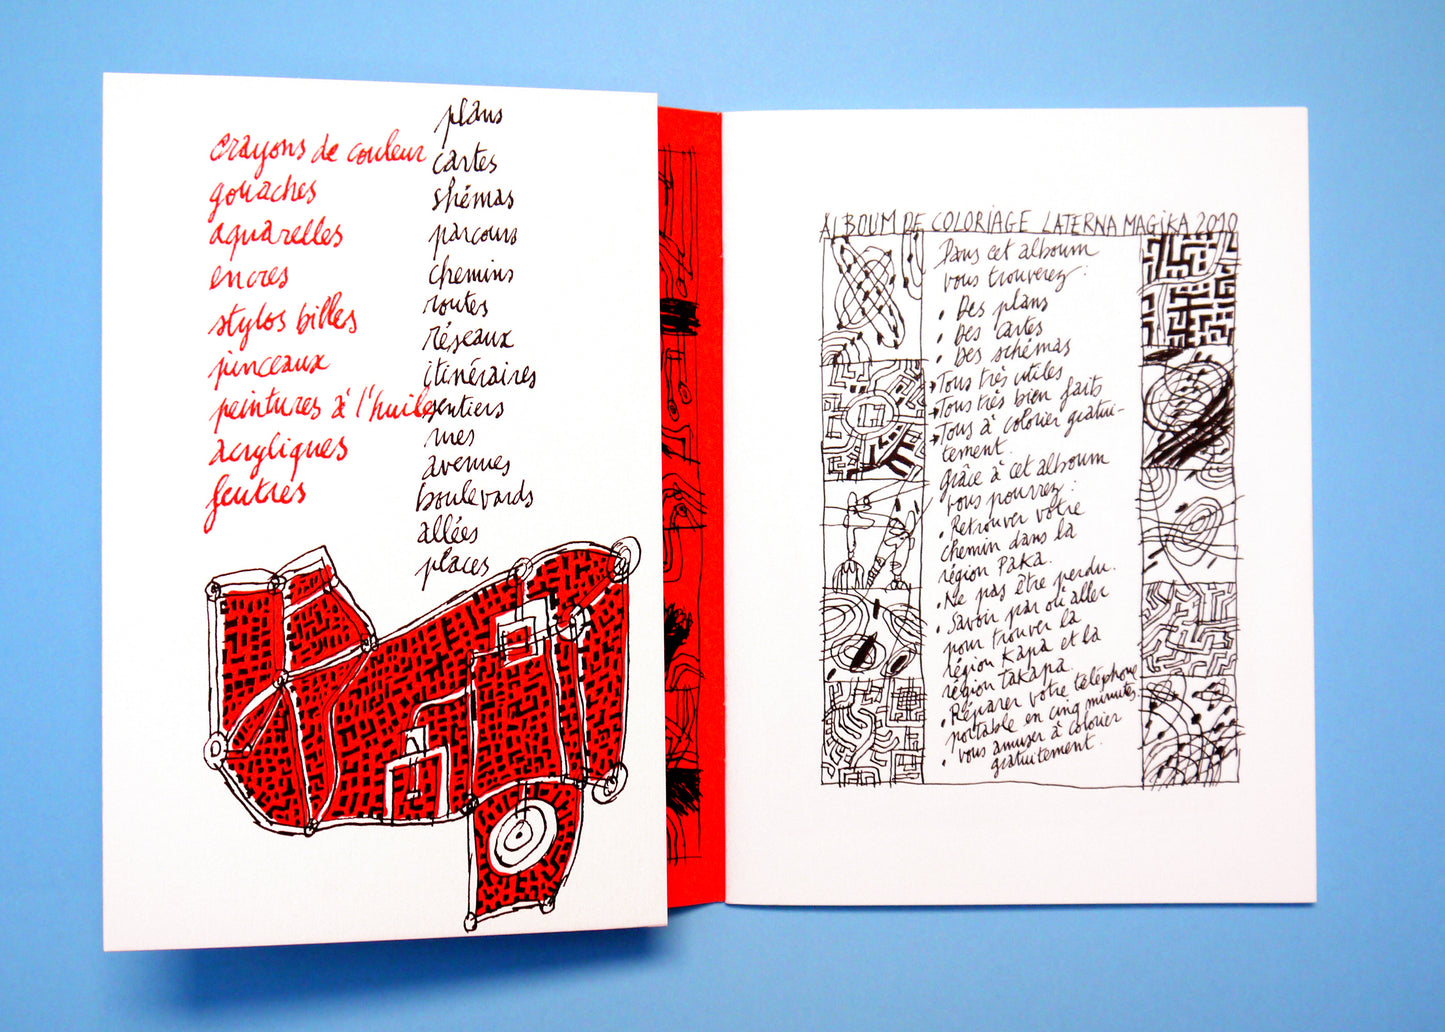 crayons de couleur
gouaches
aquarelles
encres
stylos billes
pinceaux
peintures à l'huile
acryliques
feutres
plans
cartes
shémas
parcours
chemins
routes
réseaux
itinéraires
sentiers
rues
avenues
boulevards
allées
places
ALBOUM DE COLORIAGE LATERNA MAGIKA 2010
Dans cet alboum
vous trouverez :
• Des plans
• Des cartes
• Des schémas
Tous très utiles
Tous très bien faits
Tous à colorier gratui-
tement.
Grâce à cet alboum
vous pourrez :
• Retrouver votre
chemin dans la
région PAKA.
• Ne pas être perdu.
• Savoir par où aller
pour trouver la
région KAPA et la
région TAKAPA.
• Réparer votre téléphone
portable en cinq minutes
• vous amuser à colorier
gratuitement.